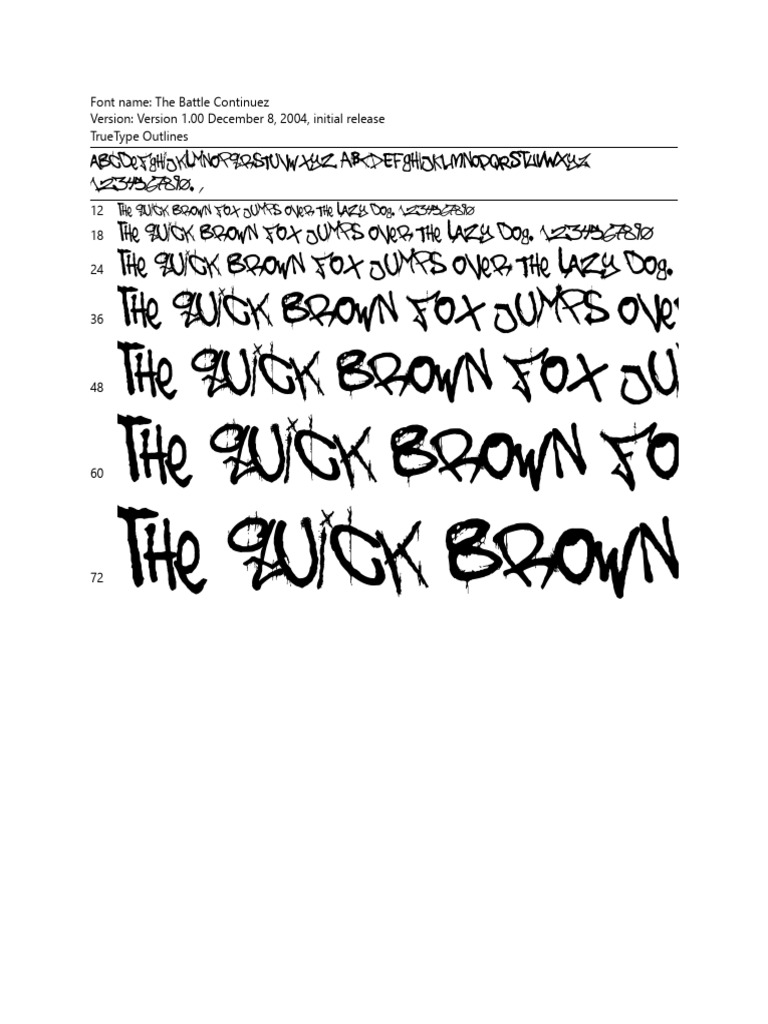 Font name: The Battle Continuez
Version: Version 1.00 December 8, 2004, initial release
TrueType Outlines
ABCDeFgHiJKLMNOPQRSTUVWXYZ ABCDEFgHIJKLMNOPQRSTUVWXYZ
1234567890. ,
12 THe QUiCK BROWN FOX JUMPS OVeR THe LAZY DOg. 1234567890
18 THe QUiCK BROWN FOX JUMPS OVeR THe LAZY DOg. 1234567890
24 THe QUiCK BROWN FOX JUMPS OVeR THe LAZY DOg.
36 THe QUiCK BROWN FOX JUMPS OVe
48 THe QUiCK BROWN FOX JU
60 THe QUiCK BROWN FO
72 THe QUiCK BROWN